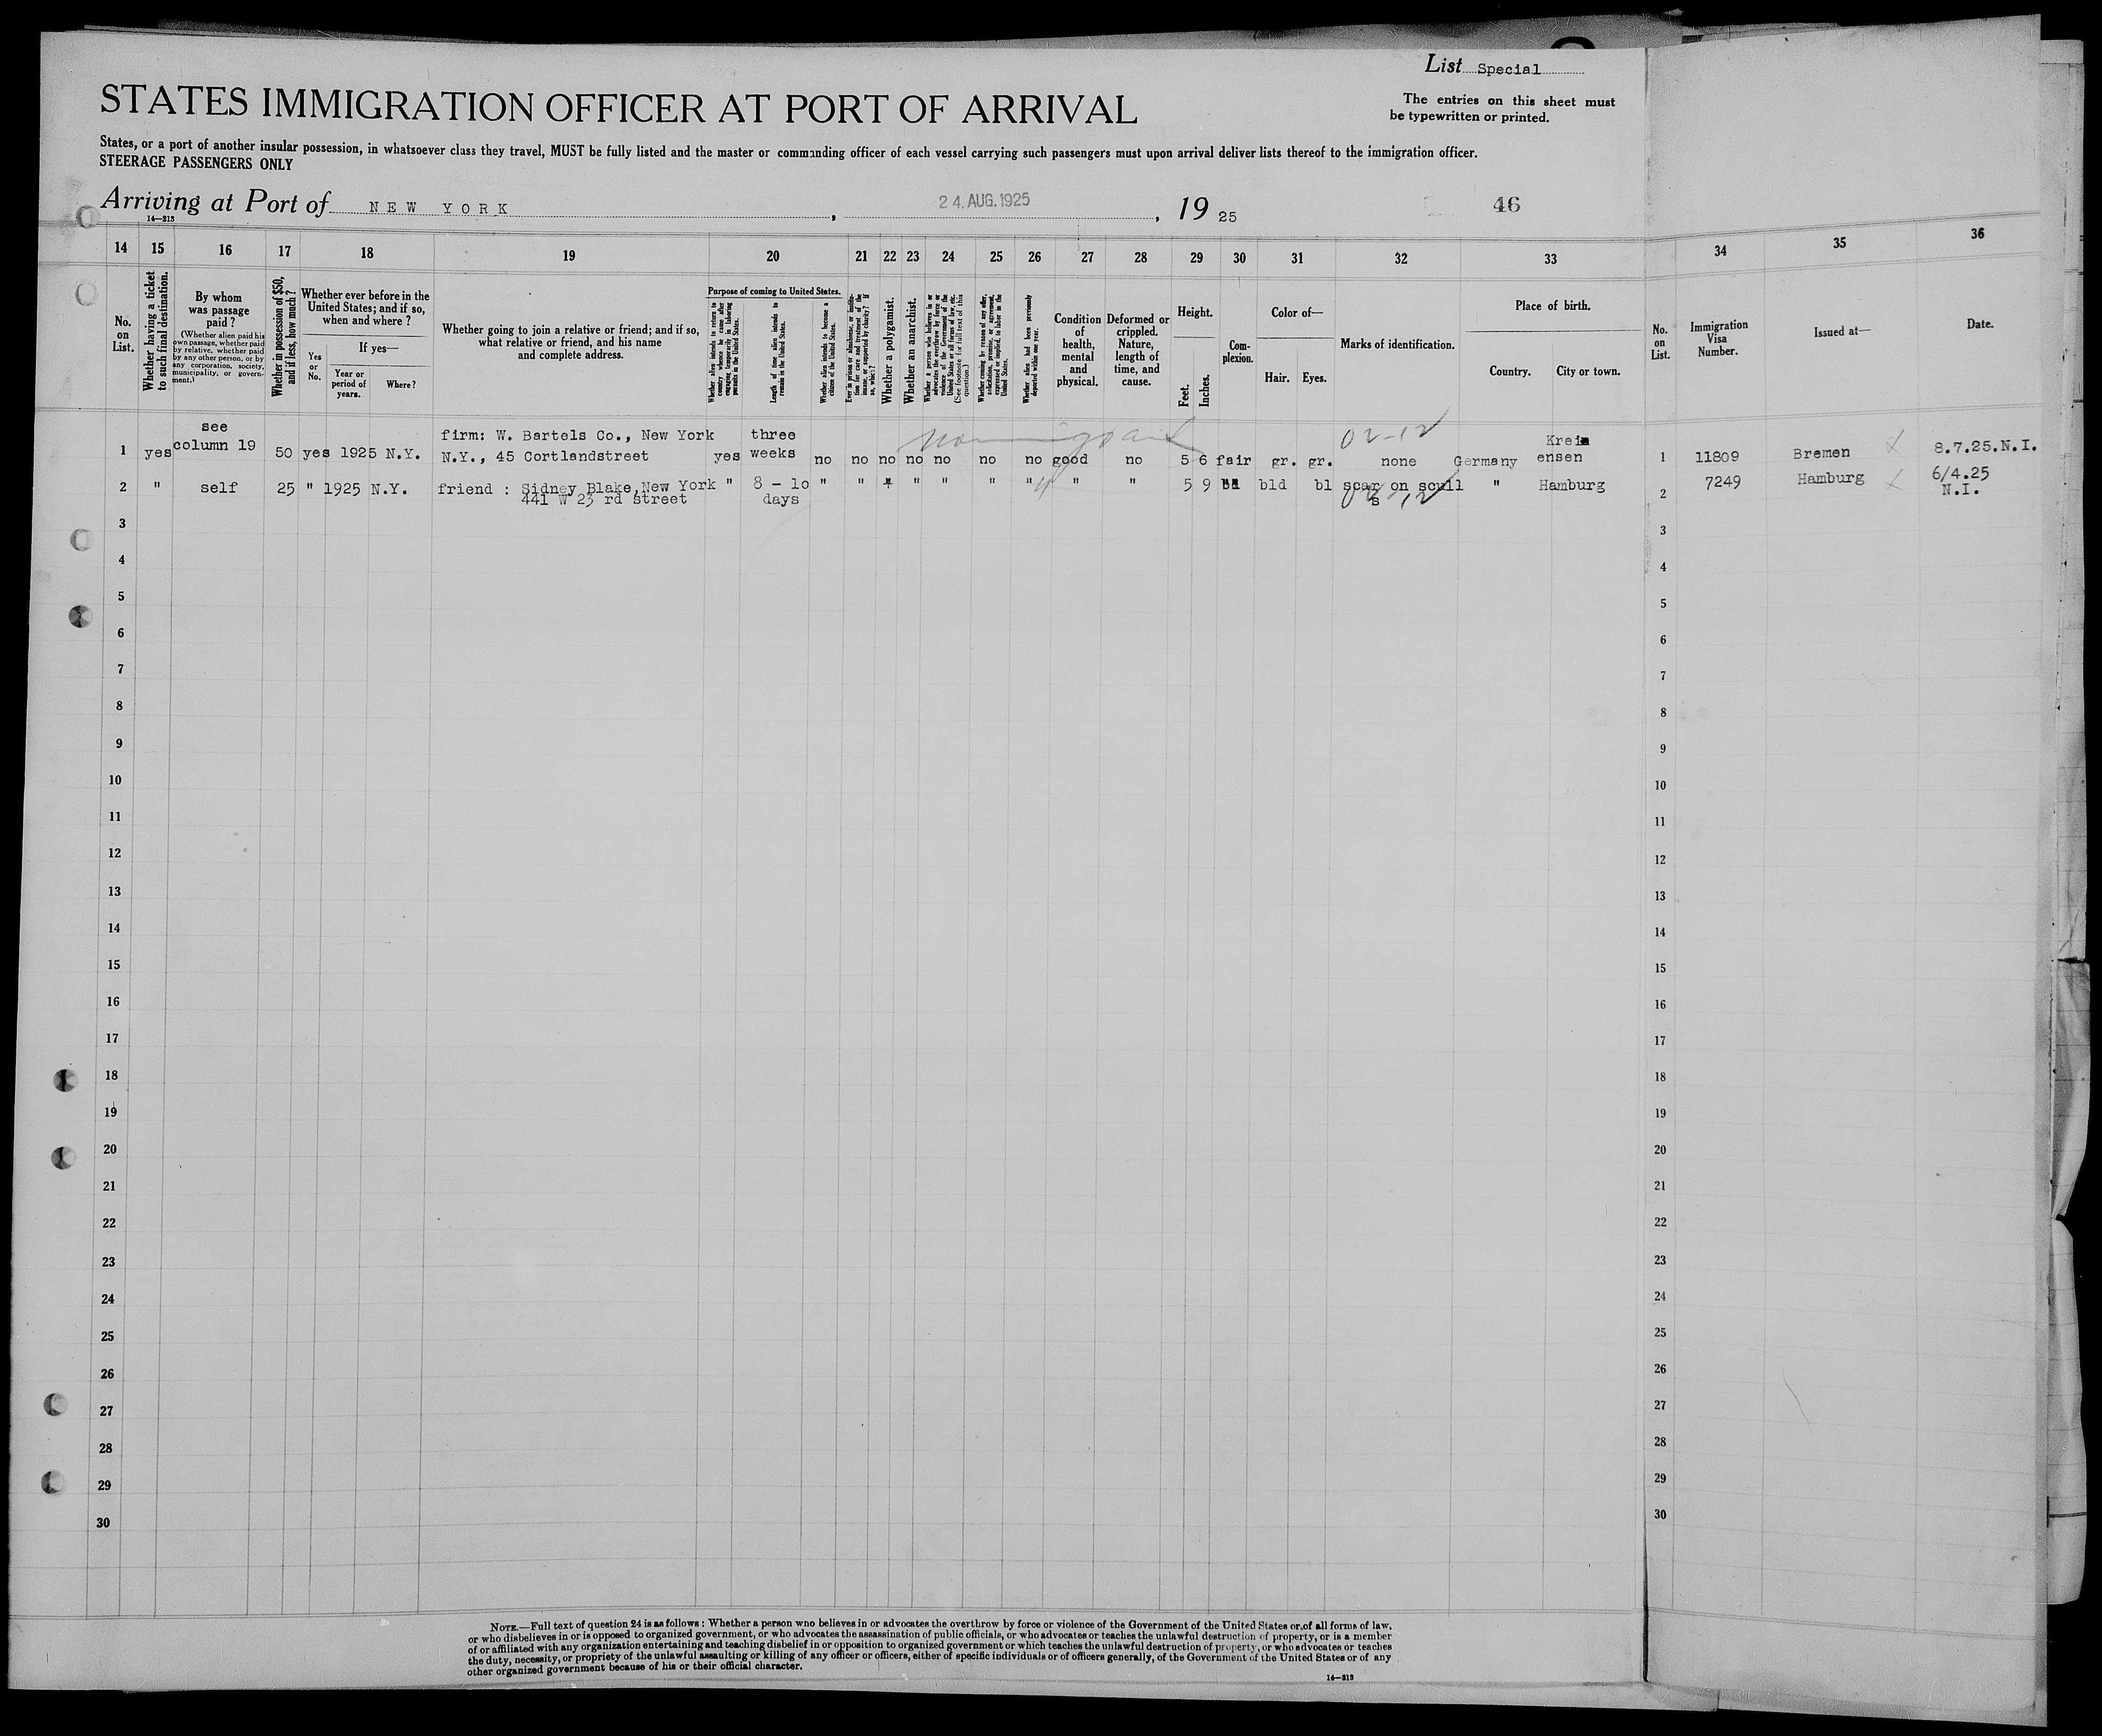 List Special
STATES IMMIGRATION OFFICER AT PORT OF ARRIVAL
The entries on this sheet must
be typewritten or printed.
States, or a port of another insular possession, in whatsoever class they travel, MUST be fully listed and the master or commanding officer of each vessel carrying such passengers must upon arrival deliver lists thereof to the immigration officer.
STEERAGE PASSENGERS ONLY
Arriving at Port of NEW YORK, 24. AUG. 1925, 19 25 46
14—213
14 15 16 17 18 19 20 21 22 23 24 25 26 27 28 29 30 31 32 33 34 35 36
No. on List.
Whether having a ticket to such final destination.
By whom was passage paid?
(Whether alien paid his own passage, whether paid by relative, whether paid by any other person, or by any corporation, society, municipality, or government.)
Whether in possession of $50, and if less, how much?
Whether ever before in the United States; and if so, when and where?
Yes or No.
If yes—
Year or period of years.
Where?
Whether going to join a relative or friend; and if so, what relative or friend, and his name and complete address.
Purpose of coming to United States.
Whether alien intends to return to country whence he came after engaging temporarily in laboring pursuits in the United States.
Length of time alien intends to remain in the United States.
Whether alien intends to become a citizen of the United States.
Ever in prison or almshouse, or institution for care and treatment of the insane, or supported by charity? If so, which?
Whether a polygamist.
Whether an anarchist.
Whether a person who believes in or advocates the overthrow by force or violence of the Government of the United States or all forms of law, etc. (See footnote for full text of this question.)
Whether coming by reason of any offer, solicitation, promise, or agreement, expressed or implied, to labor in the United States.
Whether alien had been previously deported within one year.
Condition of health, mental and physical.
Deformed or crippled. Nature, length of time, and cause.
Height.
Feet.
Inches.
Complexion.
Color of—
Hair. Eyes.
Marks of identification.
Place of birth.
Country. City or town.
No. on List.
Immigration Visa Number.
Issued at—
Date.
1 yes see column 19 50 yes 1925 N.Y. firm: W. Bartels Co., New York N.Y., 45 Cortlandstreet yes three weeks no no no no no no no good no 5 6 fair gr. gr. none Germany Kreiensen 1 11809 Bremen 8.7.25.N.I.
02-12
2 " self 25 " 1925 N.Y. friend : Sidney Blake, New York 441 W 23 rd street " 8 - 10 days " " " " " " " " 5 9 bld bl scar on scull s " Hamburg 2 7249 Hamburg 6/4.25 N.I.
3 3
4 4
5 5
6 6
7 7
8 8
9 9
10 10
11 11
12 12
13 13
14 14
15 15
16 16
17 17
18 18
19 19
20 20
21 21
22 22
23 23
24 24
25 25
26 26
27 27
28 28
29 29
30 30
NOTE.—Full text of question 24 is as follows: Whether a person who believes in or advocates the overthrow by force or violence of the Government of the United States or of all forms of law,
or who disbelieves in or is opposed to organized government, or who advocates the assassination of public officials, or who advocates or teaches the unlawful destruction of property, or is a member
of or affiliated with any organization entertaining and teaching disbelief in or opposition to organized government or which teaches the unlawful destruction of property, or who advocates or teaches
the duty, necessity, or propriety of the unlawful assaulting or killing of any officer or officers, either of specific individuals or of officers generally, of the Government of the United States or of any
other organized government because of his or their official character.
14—213